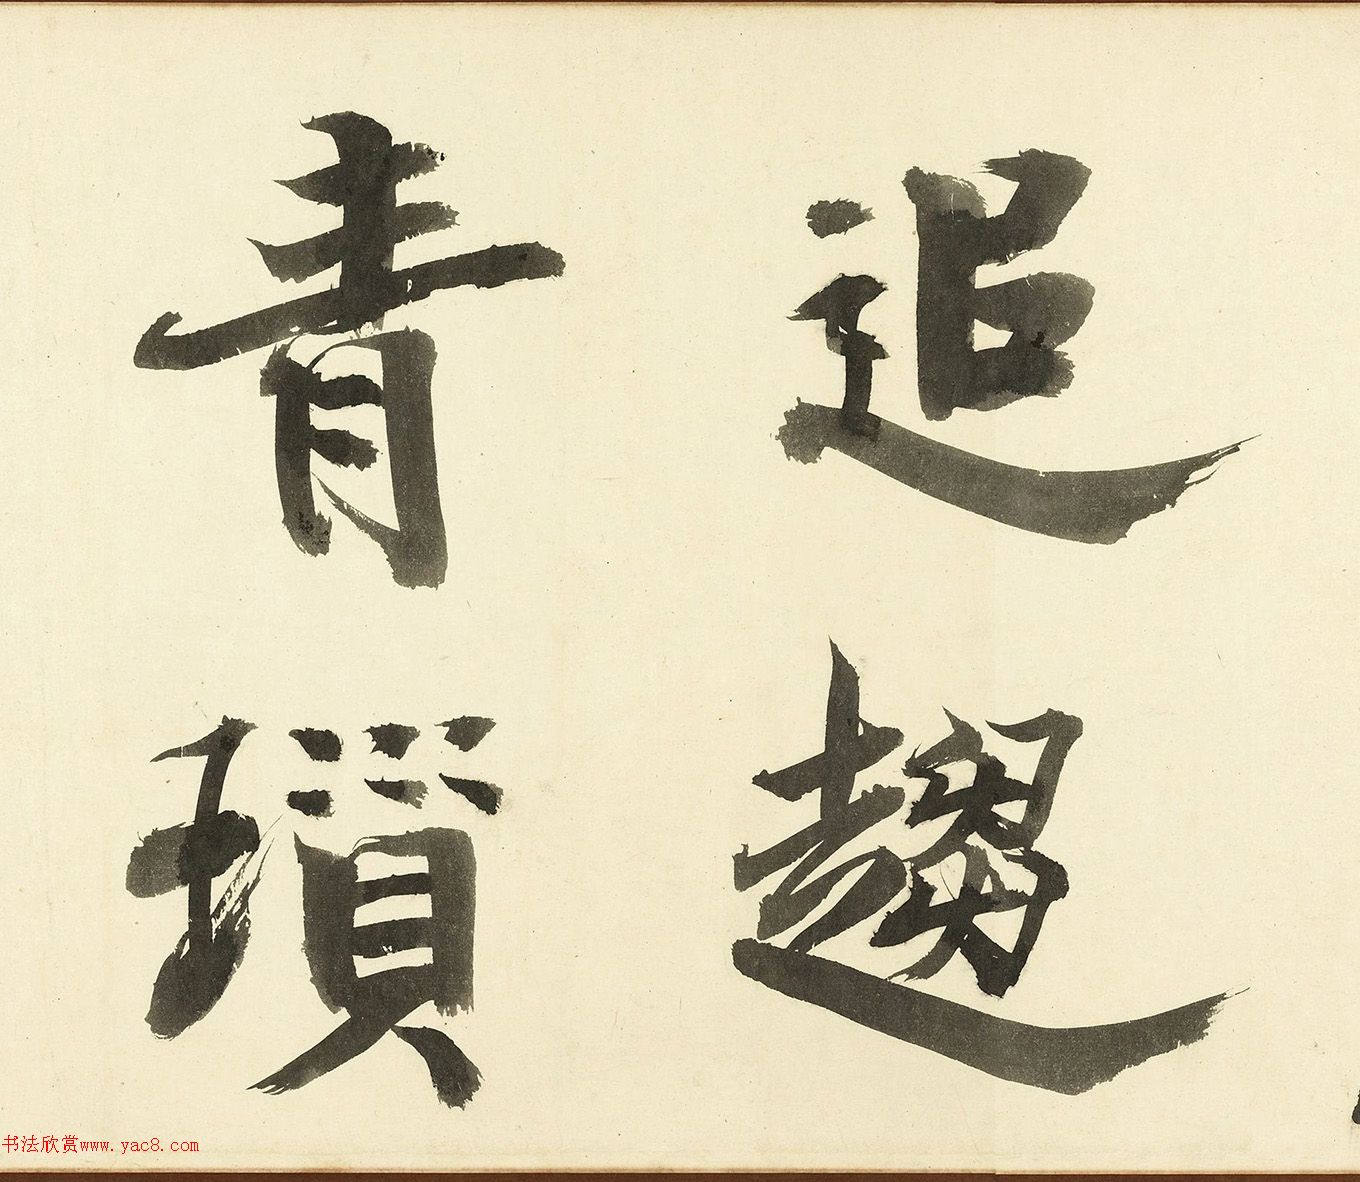 追趨
青瑣
书法欣赏www.yac8.com